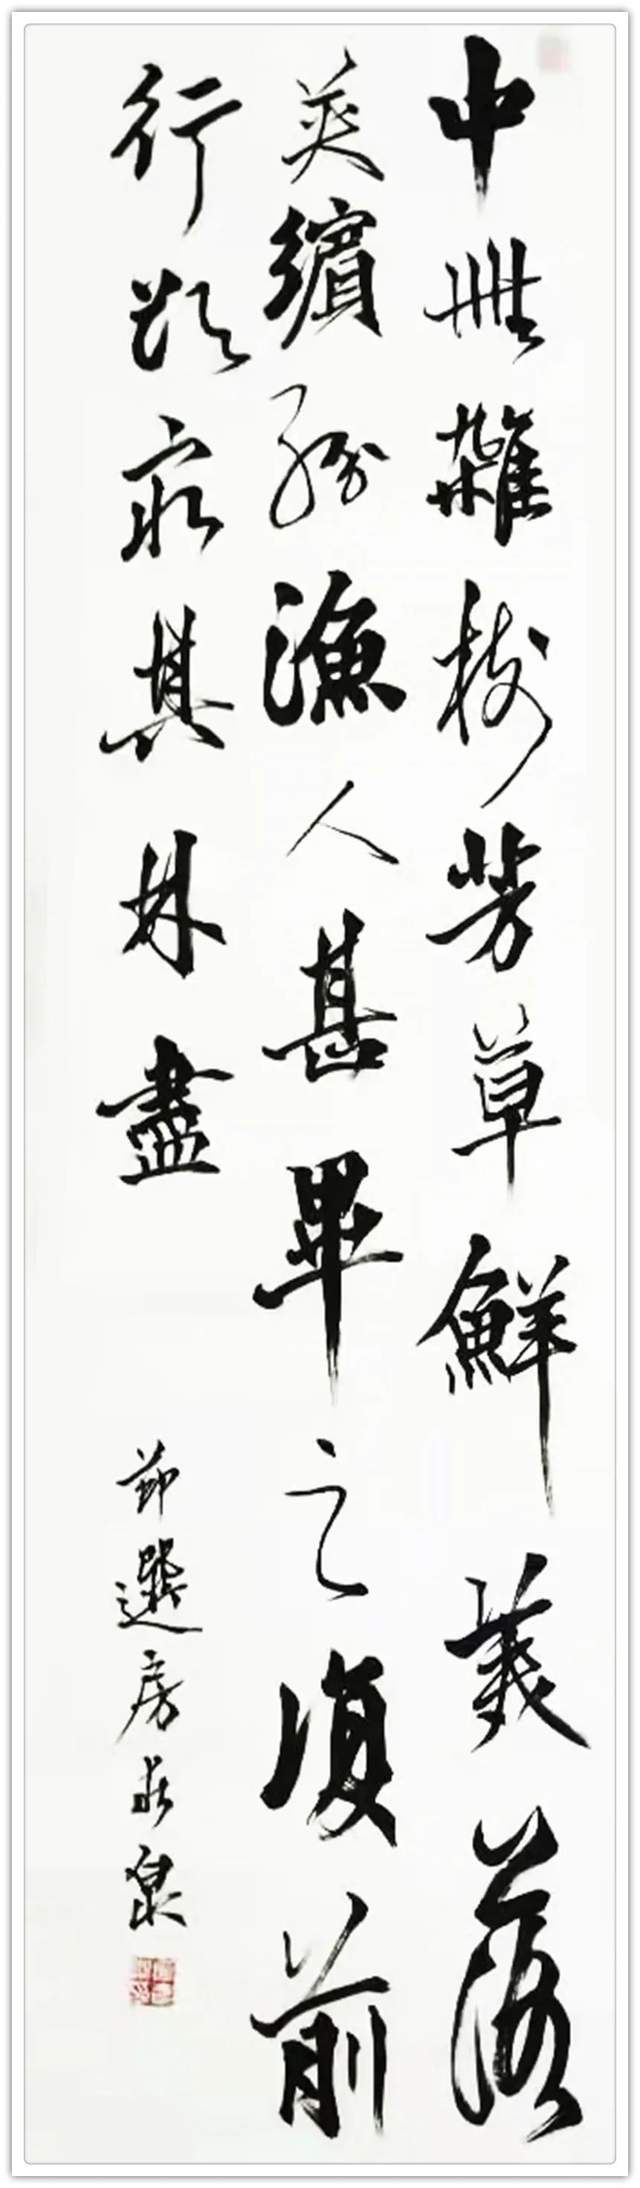 中無雜樹芳草鮮美落
英繽紛漁人甚異之復前
行欲窮其林盡
節選房